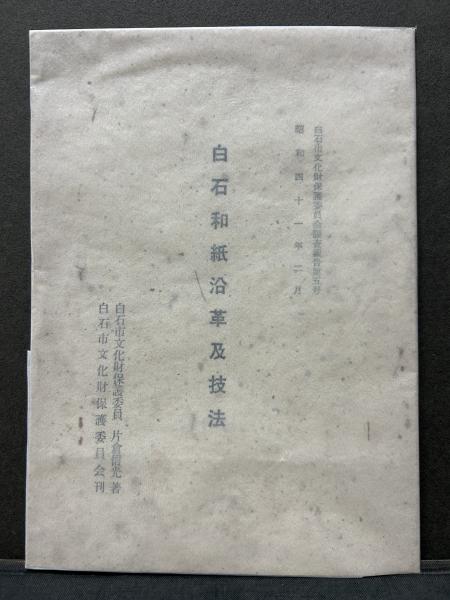 白石市文化財保護委員会調査報告第五号
昭和四十一年三月
白石和紙沿革及技法
白石市文化財保護委員 片倉信光著
白石市文化財保護委員会刊